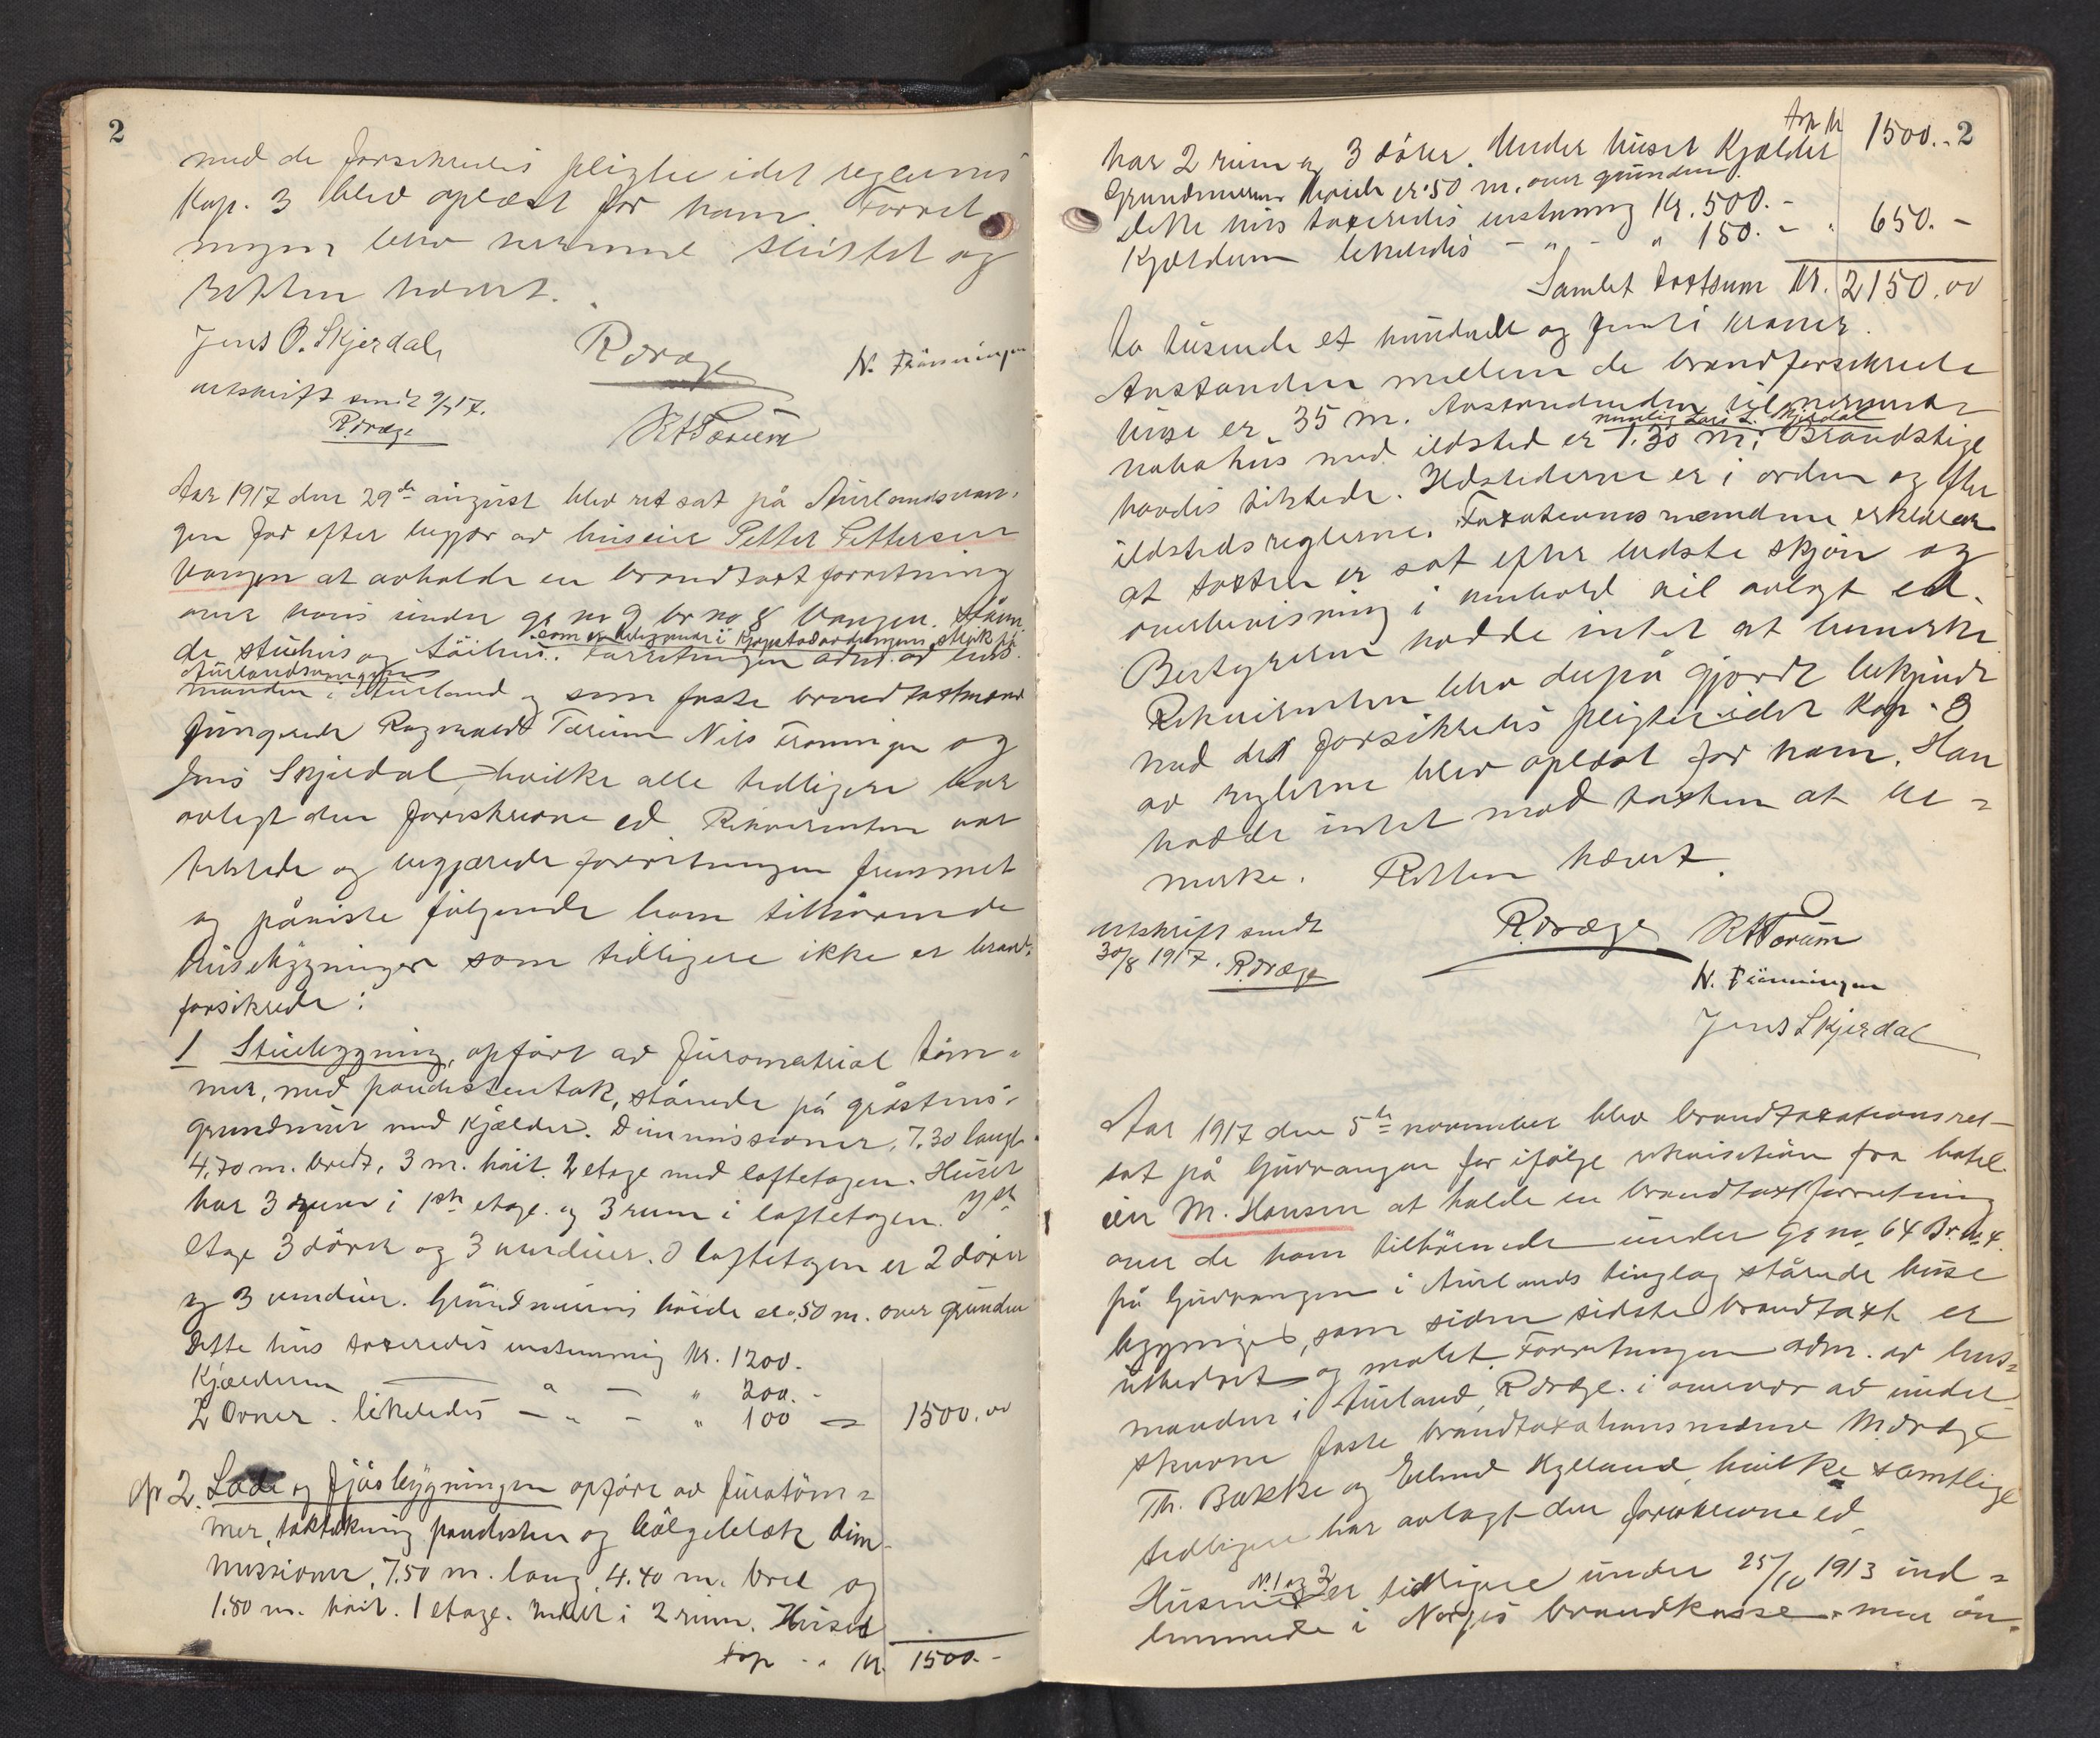 2
med de forsikredes pligter idet reglernes
Kap. 3 blev oplæst for ham. Forret-
ningen blev nærmest sluttet og
Retten hævet.
Jens O. Skjerdal,
RDræge
N. Frønningen
utskrift sendt 9/7 17.
RDræge
RHTerum
Aar 1917 den 29de august blev ret sat på Aurlandsvan-
gen for efter begjær av huseier Petter Pettersen
Vangen at avholde en brandtaxtforretning
over hans under gr no 9 br no 8 Vangen. ståen-
de stuehus og
som er beliggende i
Aurlandsvangen
Forretningen adm. av lens-
manden i Aurland og som faste brandtaxtmænd
fungerede Ragnvald Terum Nils Fronningen og
Jens Skjerdal, hvilke alle tidligere har
avlagt den foreskrevne ed. Rekvirenten var
tilstede og begjærede forretningen fremmet
og påviste følgende ham tilhørende
husebygninger som tidligere ikke er brand-
forsikrede:
1 Stuebygning, opført av furomatrial tøm-
mer, med pandestentak, stående på gråstens-
grundmur med kjælder. Dimmissioner, 7.30 langt
4,70 m. bredt, 3 m. høit. 2 etage med loftetagen. Huset
har 3 rum i 1ste etage. og 3 rum i loftetagen. I 1ste
etage 3 dører og 3 vinduer. I loftetagen er 2 dører
og 3 vinduer. Grundmurens høide er 0.50 m. over grunden
Dette hus taxeredes enstemmig Kr. 1200.-
Kjælderen — " — " 200.-
2 Ovner. likeledes — " — " 100 = 1500,00
2. Lade og fjøsbygningen opført av furutøm-
mer, taktækning pandesten og bølgeblæk dim-
missioner, 7.50 m. lang, 4.40 m. bred og
1.80 m. høit. 1 etage. indelt i 2 rum. Huset
Trp. . Kr. 1500.-
Trp Kr 1500.- 2
har 2 rum og 3 dører. Under huset Kjælder
Grundmurens høide er 0.50 m. over grunden.
Dette hus taxeredes enstemmig Kr. 500.-
Kjælderen likeledes - " - " 150.- . 650.-
Samlet taxtsum Kr. 2150.00
to tusende et hundrede og femti kroner.
Avstanden mellem de brandforsikrede
huse er 35 m. Avstanden til nærmeste
nemlig Lars L. Skjerdal
nabohus med ildsted er 1.30 m. Brandstige
havdes tilstede. Ildstederne er i orden og efter
ildstedsreglerne. Taxationsmændene erklærer
at taxten er sat efter bedste skjøn og
overbevisning i henhold til avlagt ed.
Bestyreren hadde intet at bemerke
Rekvirenten blev derpå gjordt bekjendt
med det forsikredes pligter idet Kap. 3
av reglerne blev oplæst for ham. Han
hadde intet mod taxten at be-
merke. Retten hævet.
Utskrift sendt
30/8 1917. RDræge
RDræge
RHTerum
N. Frønningen
Jens Skjerdal
Aar 1917 den 5te november blev brandtaxationsret-
sat på Gudvangen for ifølge rekvisition fra hotel-
eier M. Hansen at holde en brandtaxtforretning
over de ham tilhørende under Gr no 64 Br. No 4.
på Gudvangen i Aurlands tinglag stående huse
bygninger, som siden sidste brandtaxt er
utbedret og malet. Forretningen adm. av lens-
manden i Aurland, RDræge. i overvær av under-
skrevne faste brandtaxationsmænd M. Dræge
Th. Bakke og Erlend Hylland, hvilke samtlige
tidligere har avlagt den foreskrevne ed.
No. 1 og 2
Husene er tidligere under 25/10 1913 ind-
lemmede i Norges brandkasse. men øn-